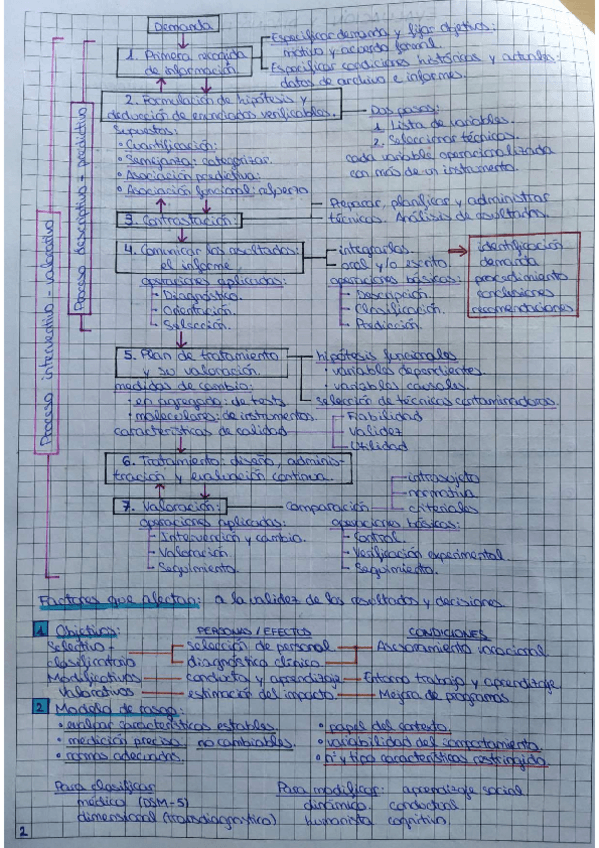 Demanda
1. Primera recogida
de información.
Especificar demanda y fijar objetivos:
motivo y acuerdo formal.
Especificar condiciones históricas y actuales:
datos de archivo e informes.
2. Formulación de hipótesis y
deducción de enunciados verificables.
Supuestos:
• Cuantificación:
• Semejanza: categorizar.
• Asociación predictiva:
• Asociación funcional:
Dos pasos:
1. Lista de variables.
2. Seleccionar técnicas.
cada variable operacionalizada
con más de un instrumento.
3. Contrastación:
Preparar, planificar y administrar
técnicas. Análisis de resultados.
4. Comunicar los resultados:
el informe
integrarlos
oral y/o escrito
identificación
demanda
procedimiento
conclusiones
recomendaciones
operaciones aplicadas:
Diagnóstico.
Orientación.
Selección.
operaciones básicas:
Descripción.
Clasificación.
Predicción.
5. Plan de tratamiento
y su valoración.
hipótesis funcionales
• variables dependientes.
• variables causales.
selección de técnicas contaminadoras.
medidas de cambio:
• en agregado: de tests
• moleculares: de instrumentos.
características de calidad
Fiabilidad
Validez
Utilidad
6. Tratamiento: diseño, adminis-
tración y evaluación continua.
7. Valoración:
comparación
intrasujeto
normativa
criteriales
operaciones aplicadas:
Intervención y cambio.
Valoración.
Seguimiento.
operaciones básicas:
Control.
Verificación experimental.
Seguimiento.
Proceso interventivo - valorativo
Proceso descriptivo - predictivo
Factores que afectan: a la validez de los resultados y decisiones
1 Objetivos: PERSONAS / EFECTOS CONDICIONES
Selectivo - selección de personal Asesoramiento vocacional
clasificatorio diagnóstico clínico
Modificativos conducta y aprendizaje Entorno trabajo y aprendizaje
Valorativos estimación del impacto Mejora de programas.
2 Modelo de rasgo:
• evaluar características estables.
• medición precisa: no cambiables.
• normas adecuadas.
• papel del contexto.
• variabilidad del comportamiento.
• nº y tipo características restringido.
Para clasificar
médico (DSM-5)
dimensional (transdiagnóstico)
Para modificar: aprendizaje social
dinámico conductual
humanista cognitivo.
2